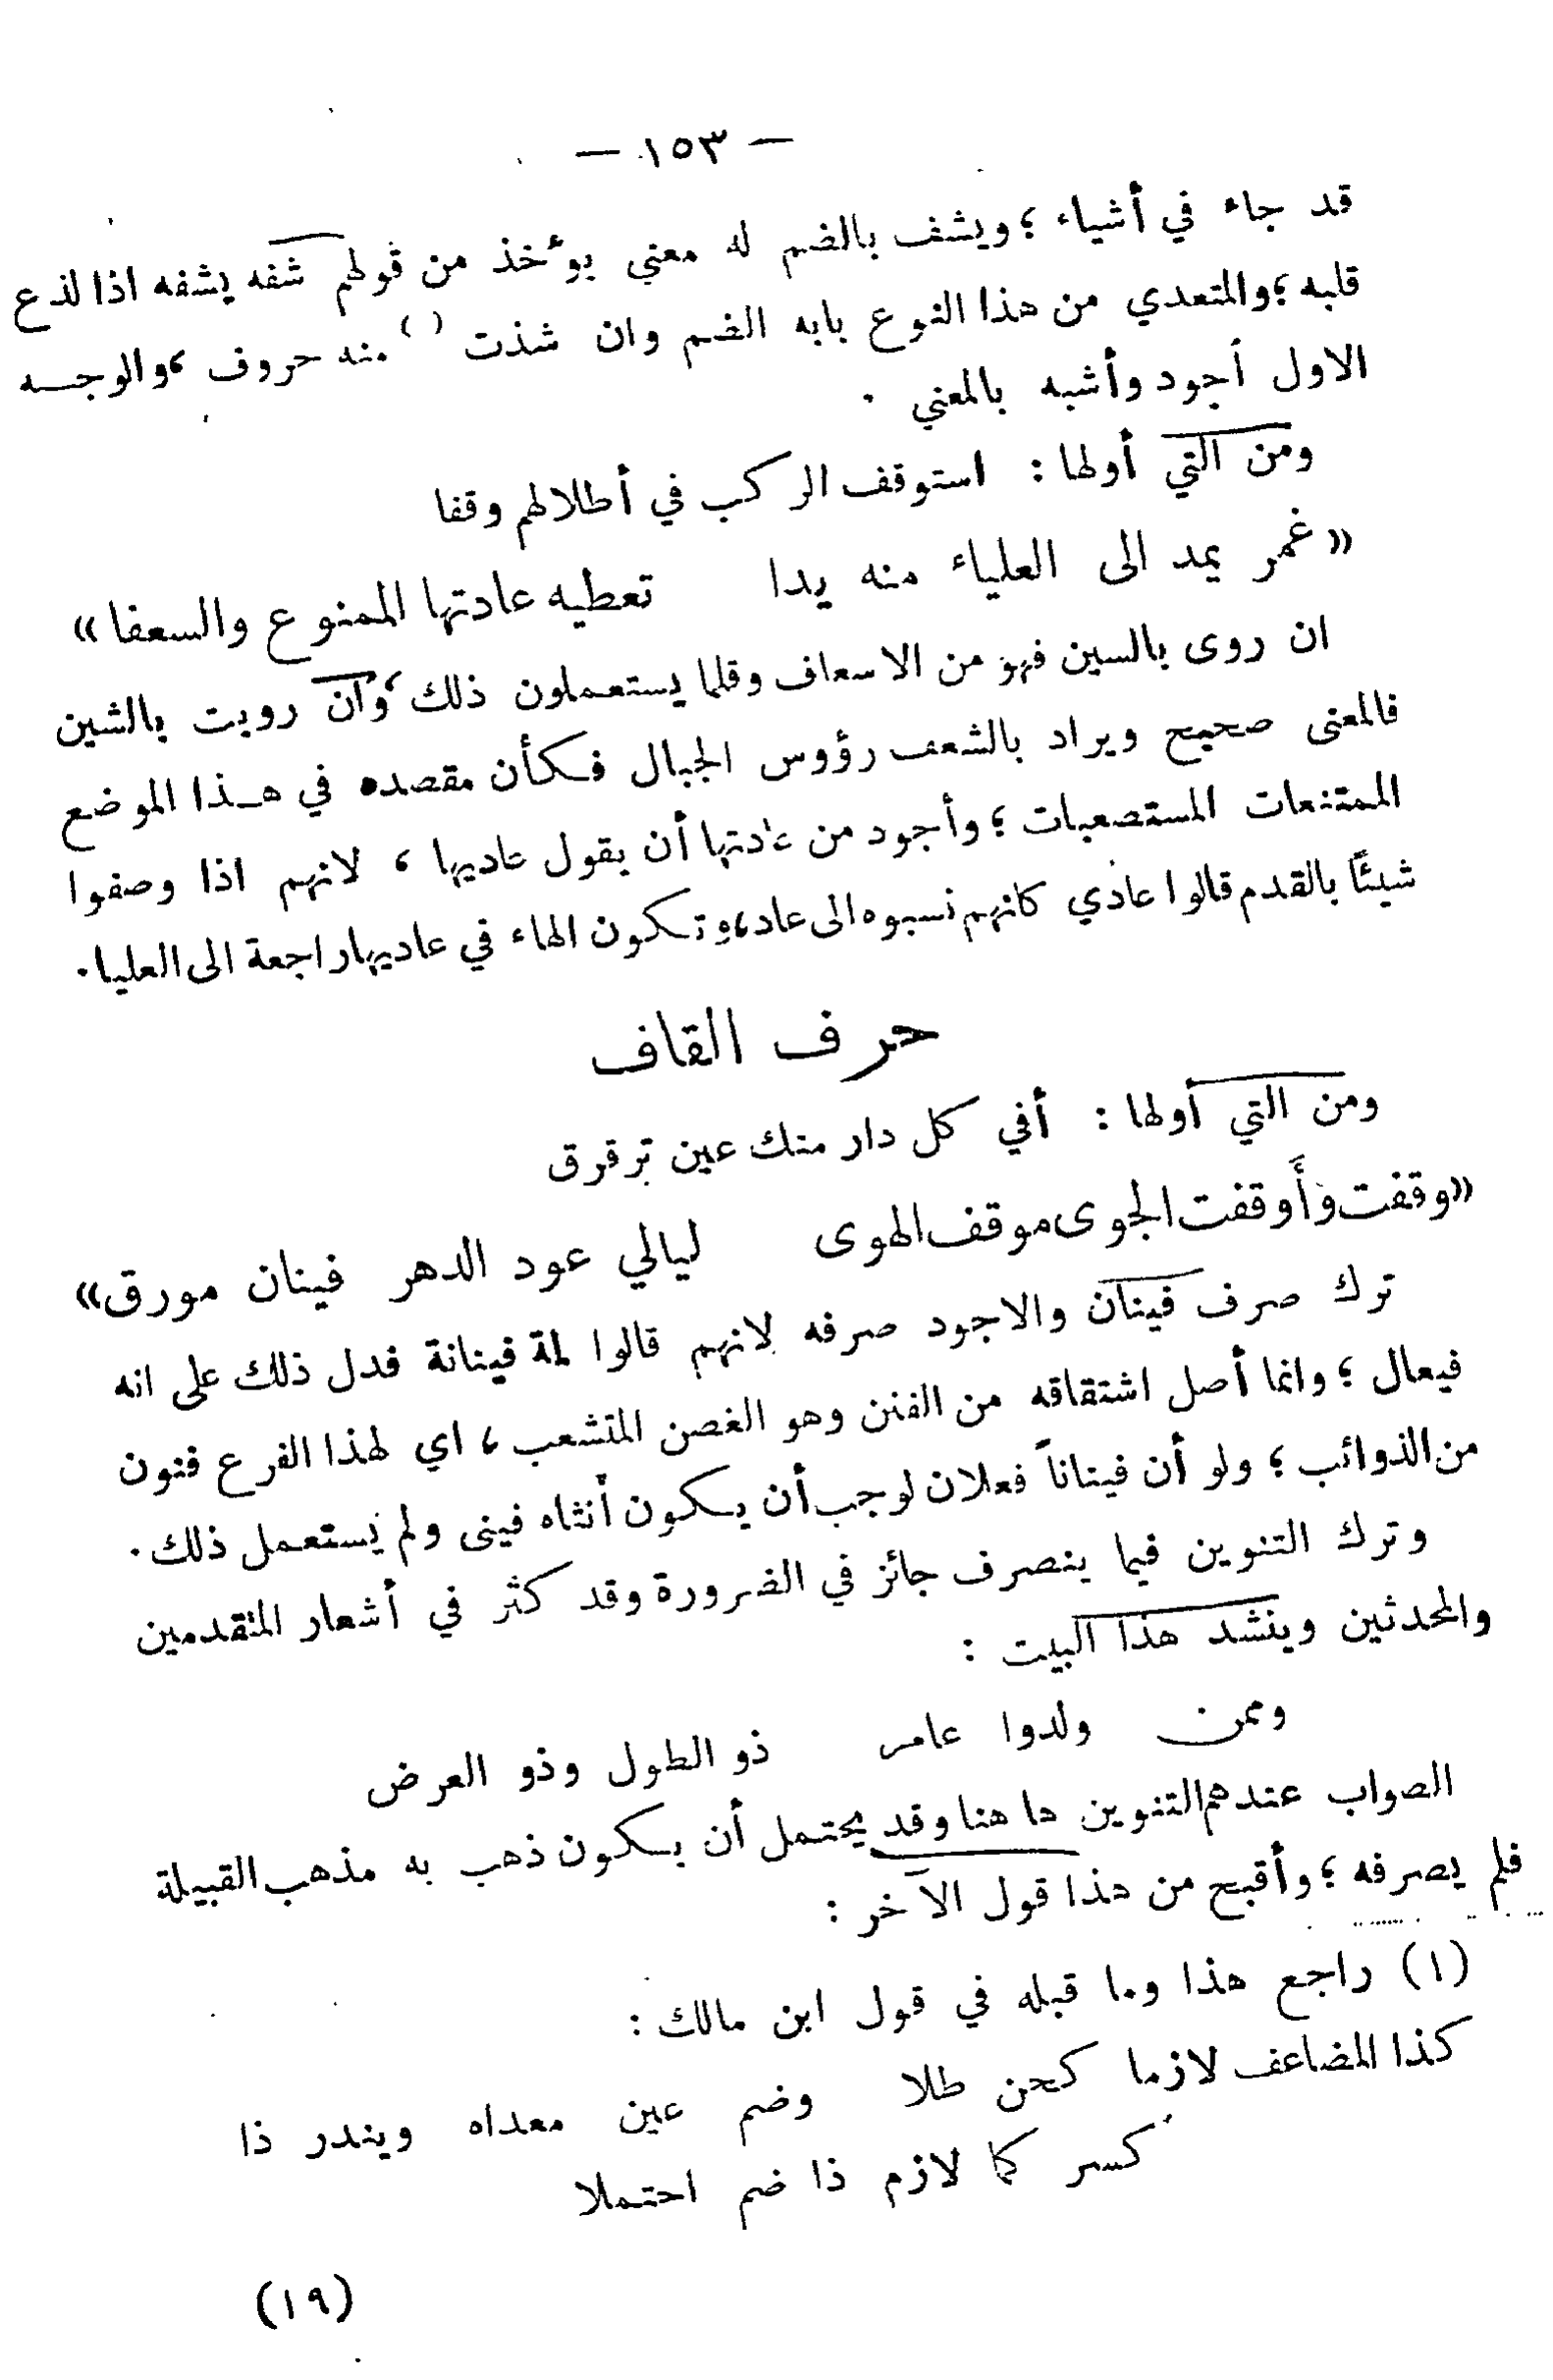 — ١٥٣ —
قد جاء في أشياء ؛ ويشف بالضم له معني يؤخذ من قولهم شفه يشفه اذا لذع
قلبه ؛ والمتعدي من هذا النوع بابه الضم وان شذت ( ) منه حروف ، والوجه
الاول أجود وأشبه بالمعني .
ومن التي أولها : استوقف الركب في أطلالهم وقفا
« غمر يمد الى العلياء منه يدا تعطيه عادتها الممنوع والسعفا »
ان روى بالسين فهو من الاسعاف وقلما يستعملون ذلك ، وان رويت بالشين
فالمعنى صحيح ويراد بالشعف رؤوس الجبال فكأن مقصده في هذا الموضع
الممتنعات المستصعبات ؛ وأجود من عادتها أن يقول عاديها ، لانهم اذا وصفوا
شيئًا بالقدم قالوا عادي كانهم نسبوه الى عاد ، وتكون الهاء في عاديها راجعة الى العليا .
حرف القاف
ومن التي أولها : أفي كل دار منك عين ترقرق
« وقفت وأَوقفت الجوى موقف الهوى ليالي عود الدهر فينان مورق »
ترك صرف فينان والاجود صرفه لانهم قالوا لمة فينانة فدل ذلك على انه
فيعال ؛ وانما أصل اشتقاقه من الفنن وهو الغصن المتشعب ، اي لهذا الفرع فنون
من الذوائب ؛ ولو أن فيناناً فعلان لوجب أن يكون أنثاه فينى ولم يستعمل ذلك .
وترك التنوين فيما ينصرف جائز في الضرورة وقد كثر في أشعار المتقدمين
والمحدثين وينشد هذا البيت :
وممن ولدوا عامر ذو الطول وذو العرض
الصواب عندهم التنوين ها هنا وقد يحتمل أن يكون ذهب به مذهب القبيلة
فلم يصرفه ؛ وأقبح من هذا قول الآخر :
(١) راجع هذا وما قبله في قول ابن مالك :
كذا المضاعف لازما كحن طلا وضم عين معداه ويندر ذا
كسر كما لازم ذا ضم احتملا
(١٩)